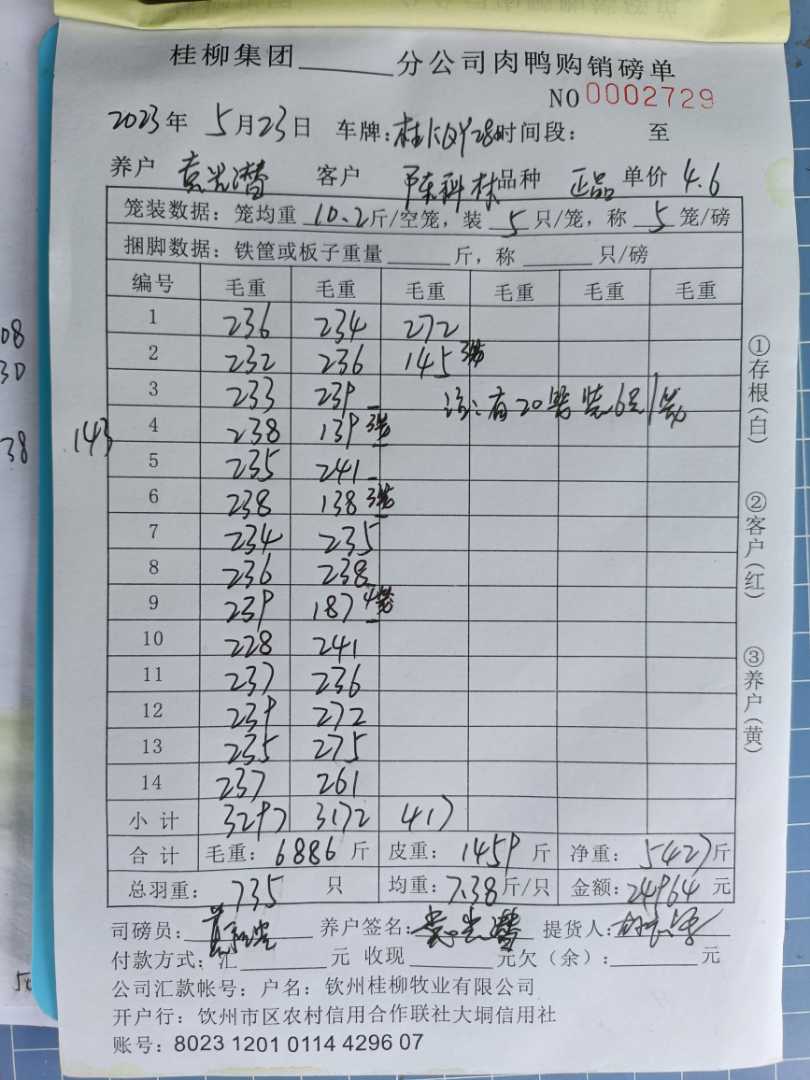 桂柳集团______分公司肉鸭购销磅单
NO 0002729
2023年 5月23日 车牌: 时间段: 至
养户 袁光潜 客户 陈科林 品种 正品 单价 4.6
笼装数据: 笼均重 10.2 斤/空笼, 装 5 只/笼, 称 5 笼/磅
捆脚数据: 铁筐或板子重量______斤, 称______只/磅
编号 毛重 毛重 毛重 毛重 毛重 毛重
1 236 234 272
2 232 236 145 3笼
3 233 239 注: 有20笼装6只/笼
143 4 238 139 3笼
5 235 241
6 238 138 3笼
7 234 235
8 236 238
9 239 187 4笼
10 228 241
11 237 236
12 239 272
13 235 275
14 237 261
小计 3297 3172 417
合计 毛重: 6886 斤 皮重: 1459 斤 净重: 5427 斤
总羽重: 735 只 均重: 7.38 斤/只 金额: 24964 元
司磅员: 养户签名: 袁光潜 提货人:
付款方式: 汇______元 收现______元欠(余):______元
公司汇款帐号: 户名: 钦州桂柳牧业有限公司
开户行: 钦州市区农村信用合作联社大垌信用社
账号: 8023 1201 0114 4296 07
①存根(白)
②客户(红)
③养户(黄)
08
30
38